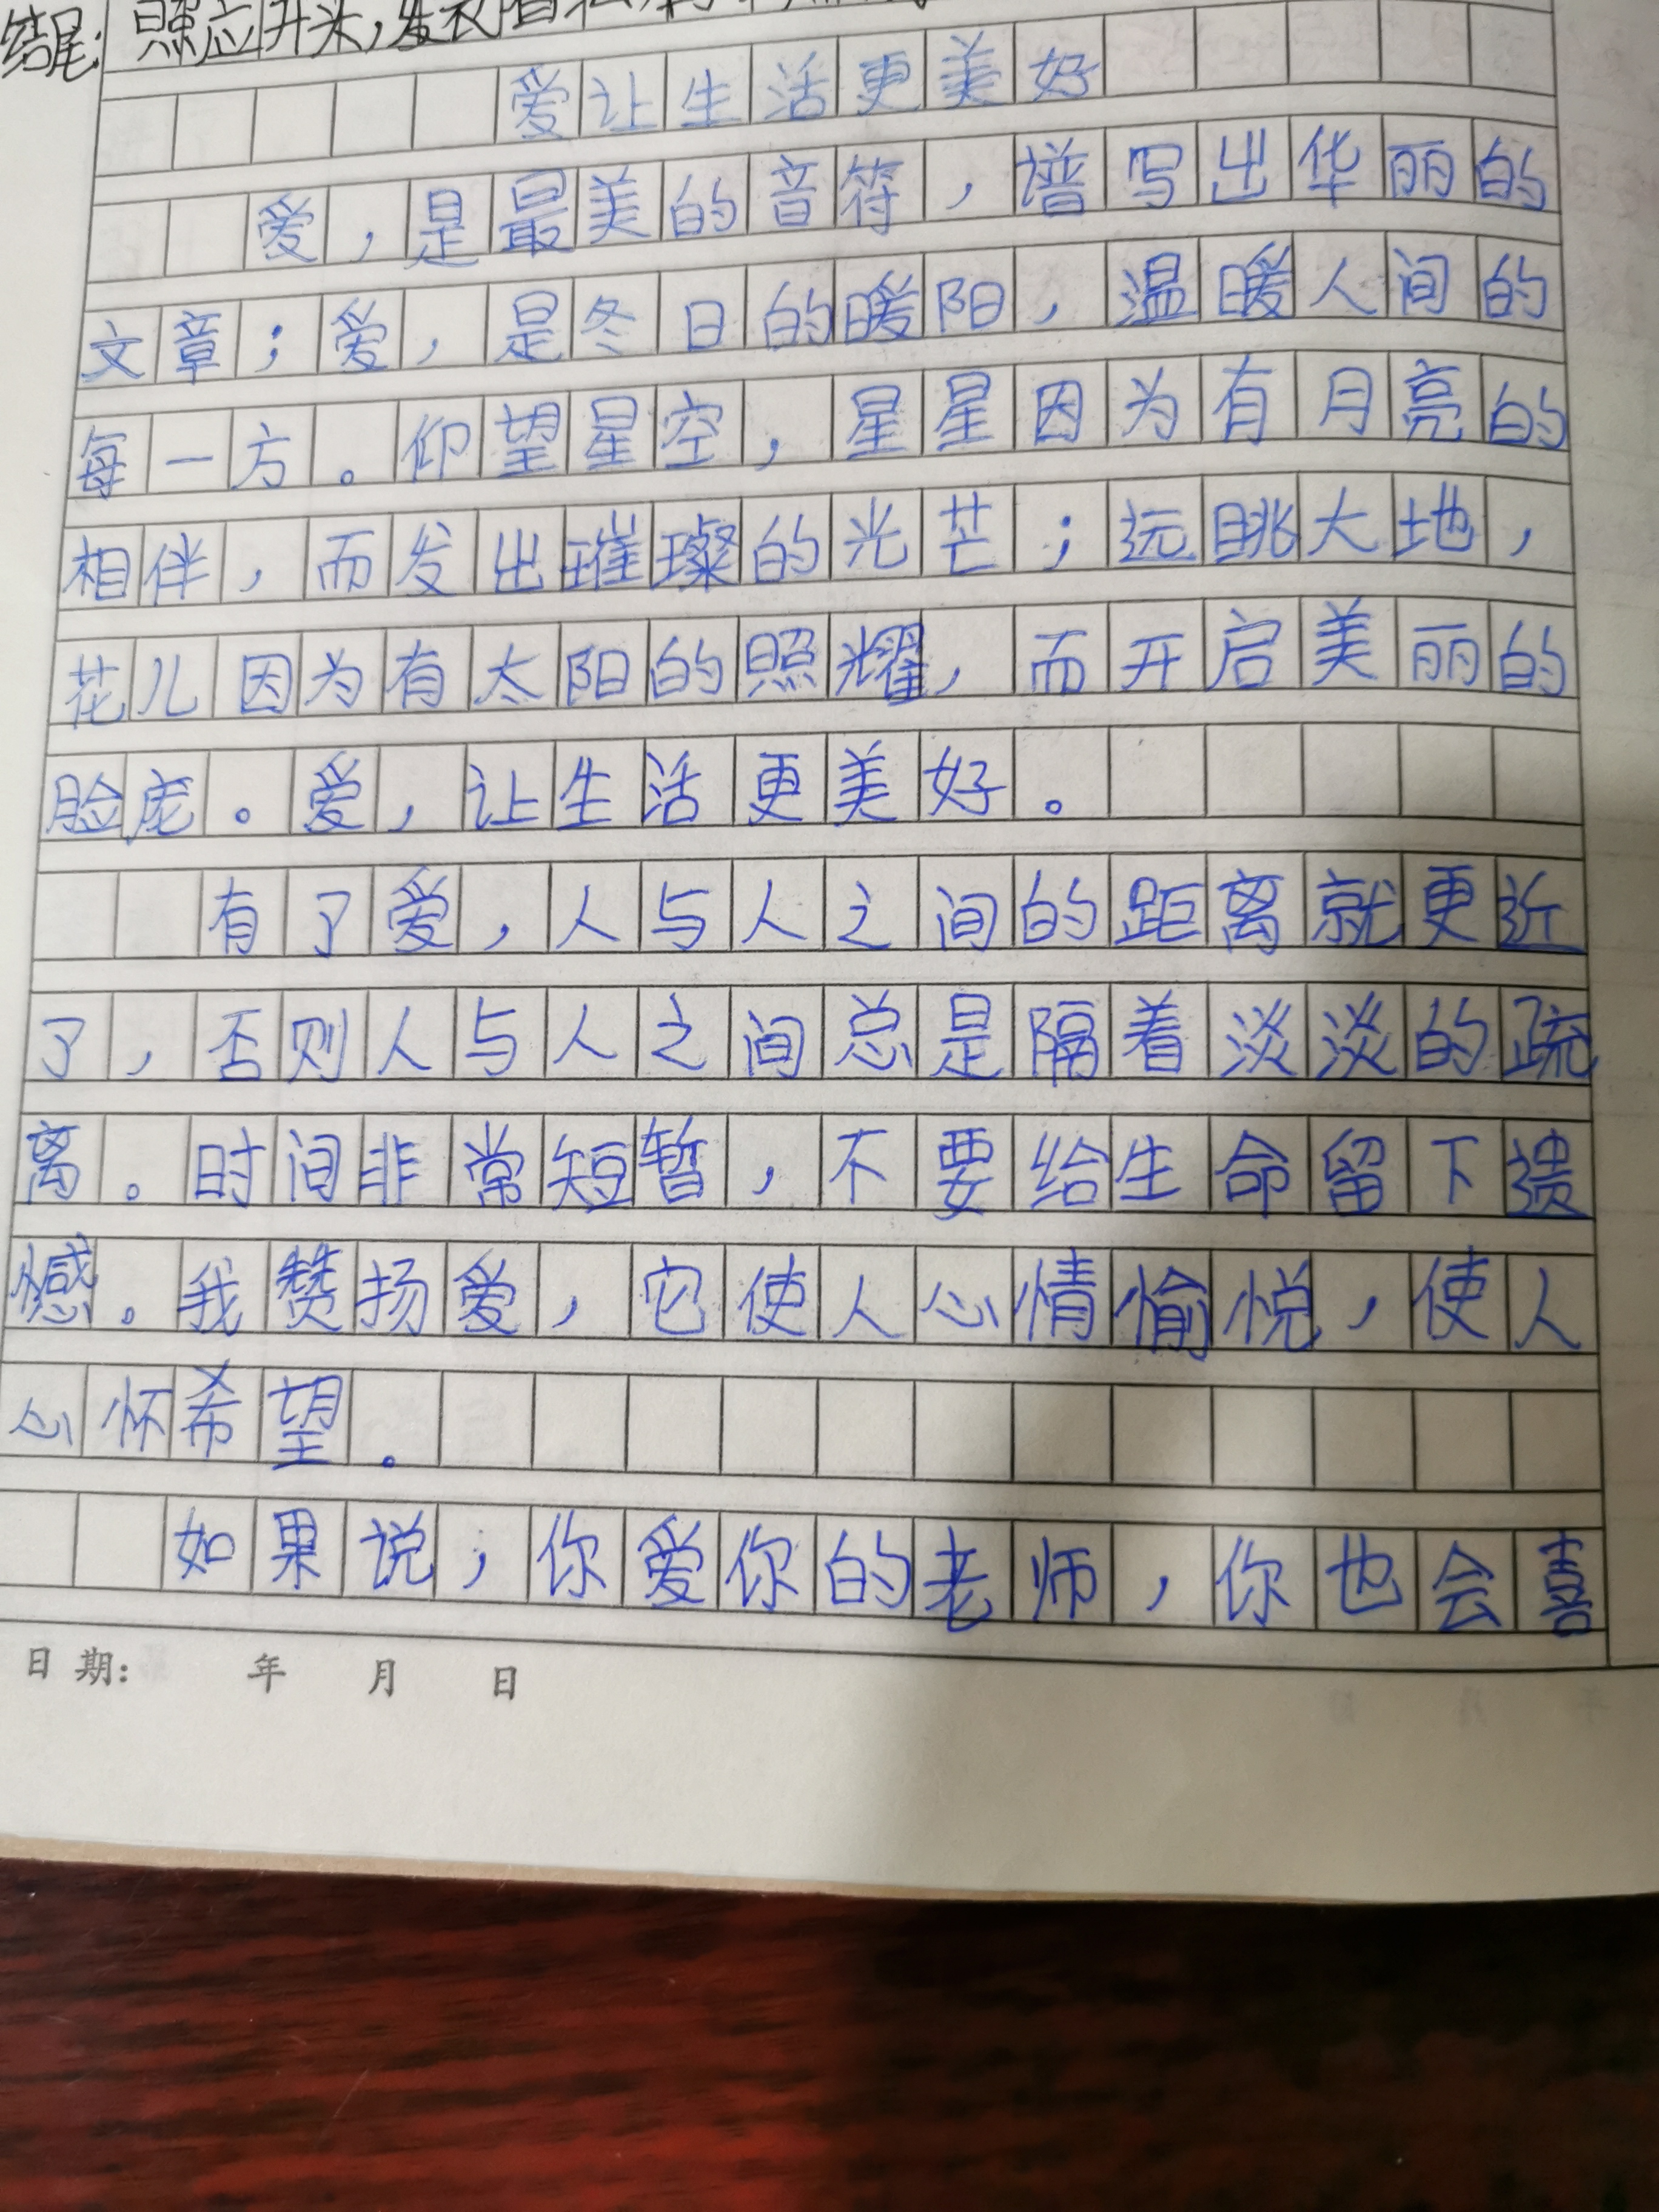 结尾：照应开头，发表
爱让生活更美好
爱，是最美的音符，谱写出华丽的
文章；爱，是冬日的暖阳，温暖人间的
每一方。仰望星空，星星因为有月亮的
相伴，而发出璀璨的光芒；远眺大地，
花儿因为有太阳的照耀，而开启美丽的
脸庞。爱，让生活更美好。
有了爱，人与人之间的距离就更近
了，否则人与人之间总是隔着淡淡的疏
离。时间非常短暂，不要给生命留下遗
憾。我赞扬爱，它使人心情愉悦，使人
心怀希望。
如果说，你爱你的老师，你也会喜
日期： 年 月 日